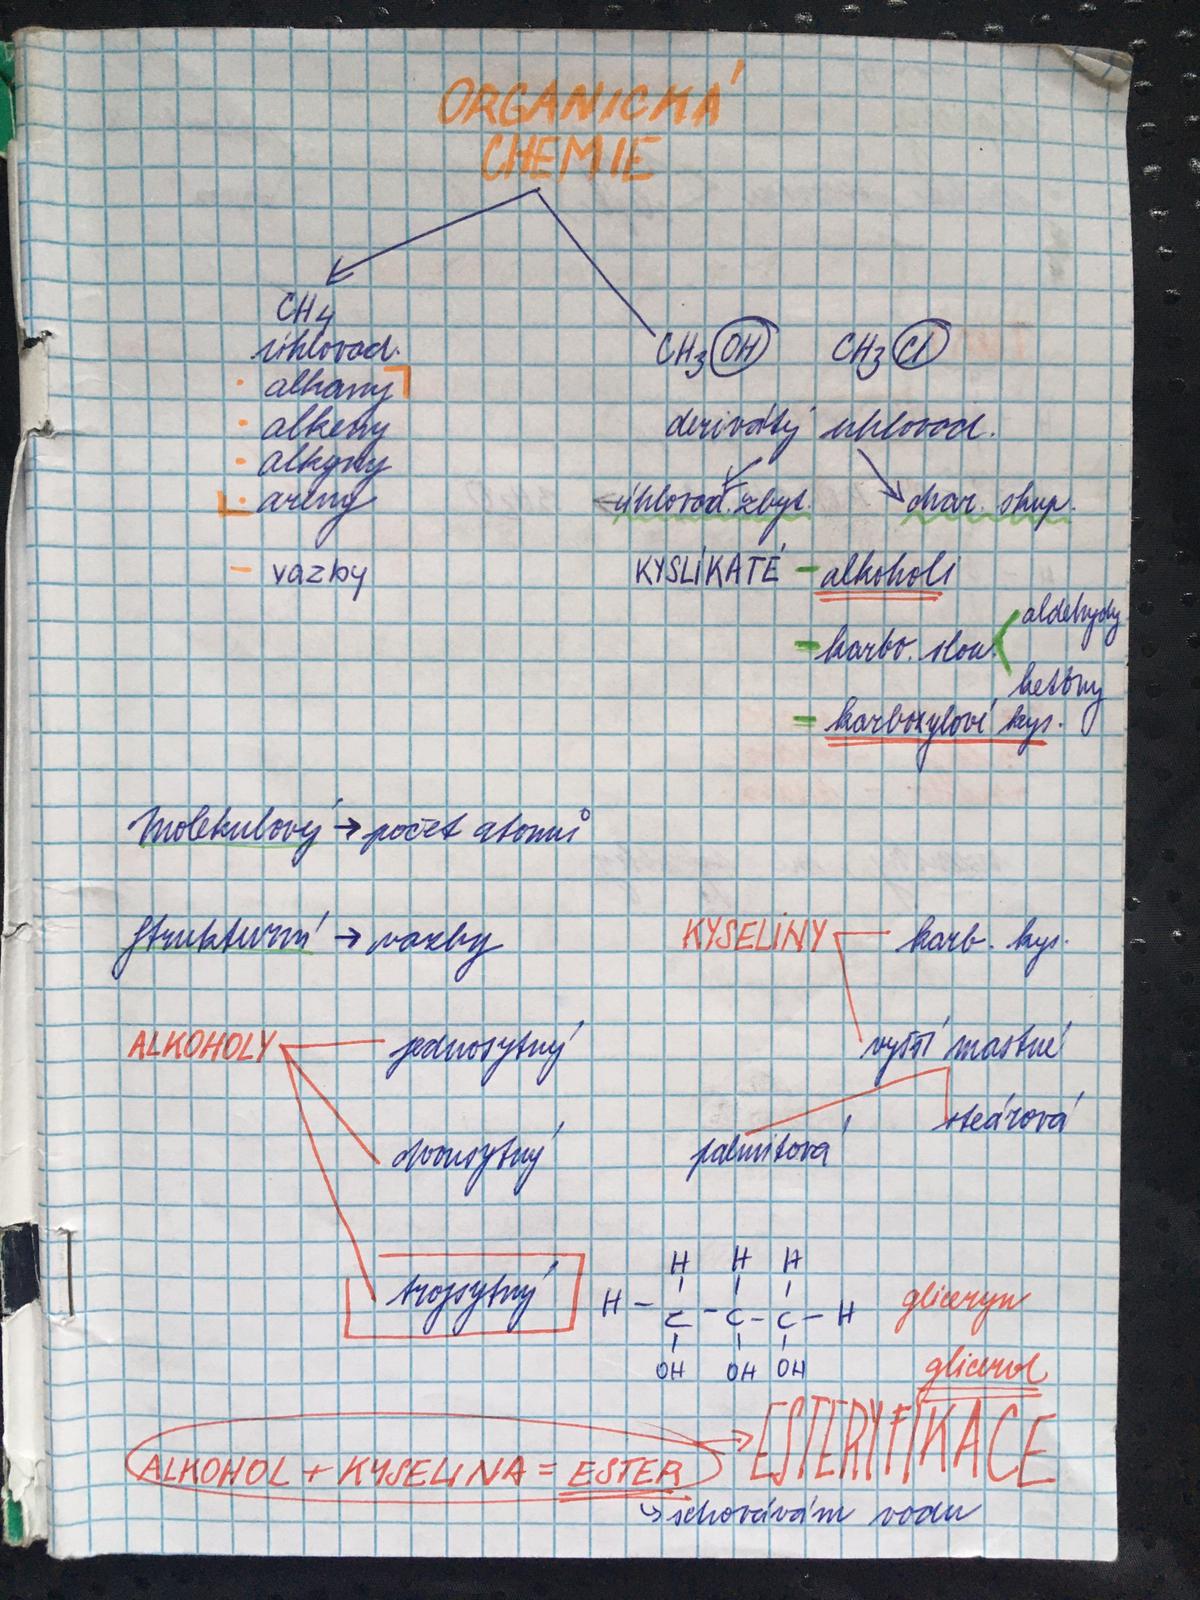 ORGANICKÁ
CHEMIE
CH4
uhlovod.
· alkany
· alkeny
· alkyny
· areny
- vazby
CH3 OH CH3 Cl
deriváty uhlovod.
uhlovod. zbyt. char. skup.
KYSLÍKATÉ - alkoholi
- karbo. slou. aldehydy
ketony
- karboxylové kys.
Molekulový → počet atomů
Strukturní → vazby
KYSELINY karb. kys.
vyšší mastné
steárová
palmitová
ALKOHOLY jednosytný
dvousytný
trojsytný
H H H
H - C - C - C - H
OH OH OH
gliceryn
glicerol
ALKOHOL + KYSELINA = ESTER → ESTERYFIKACE
↳ schovávám vodu